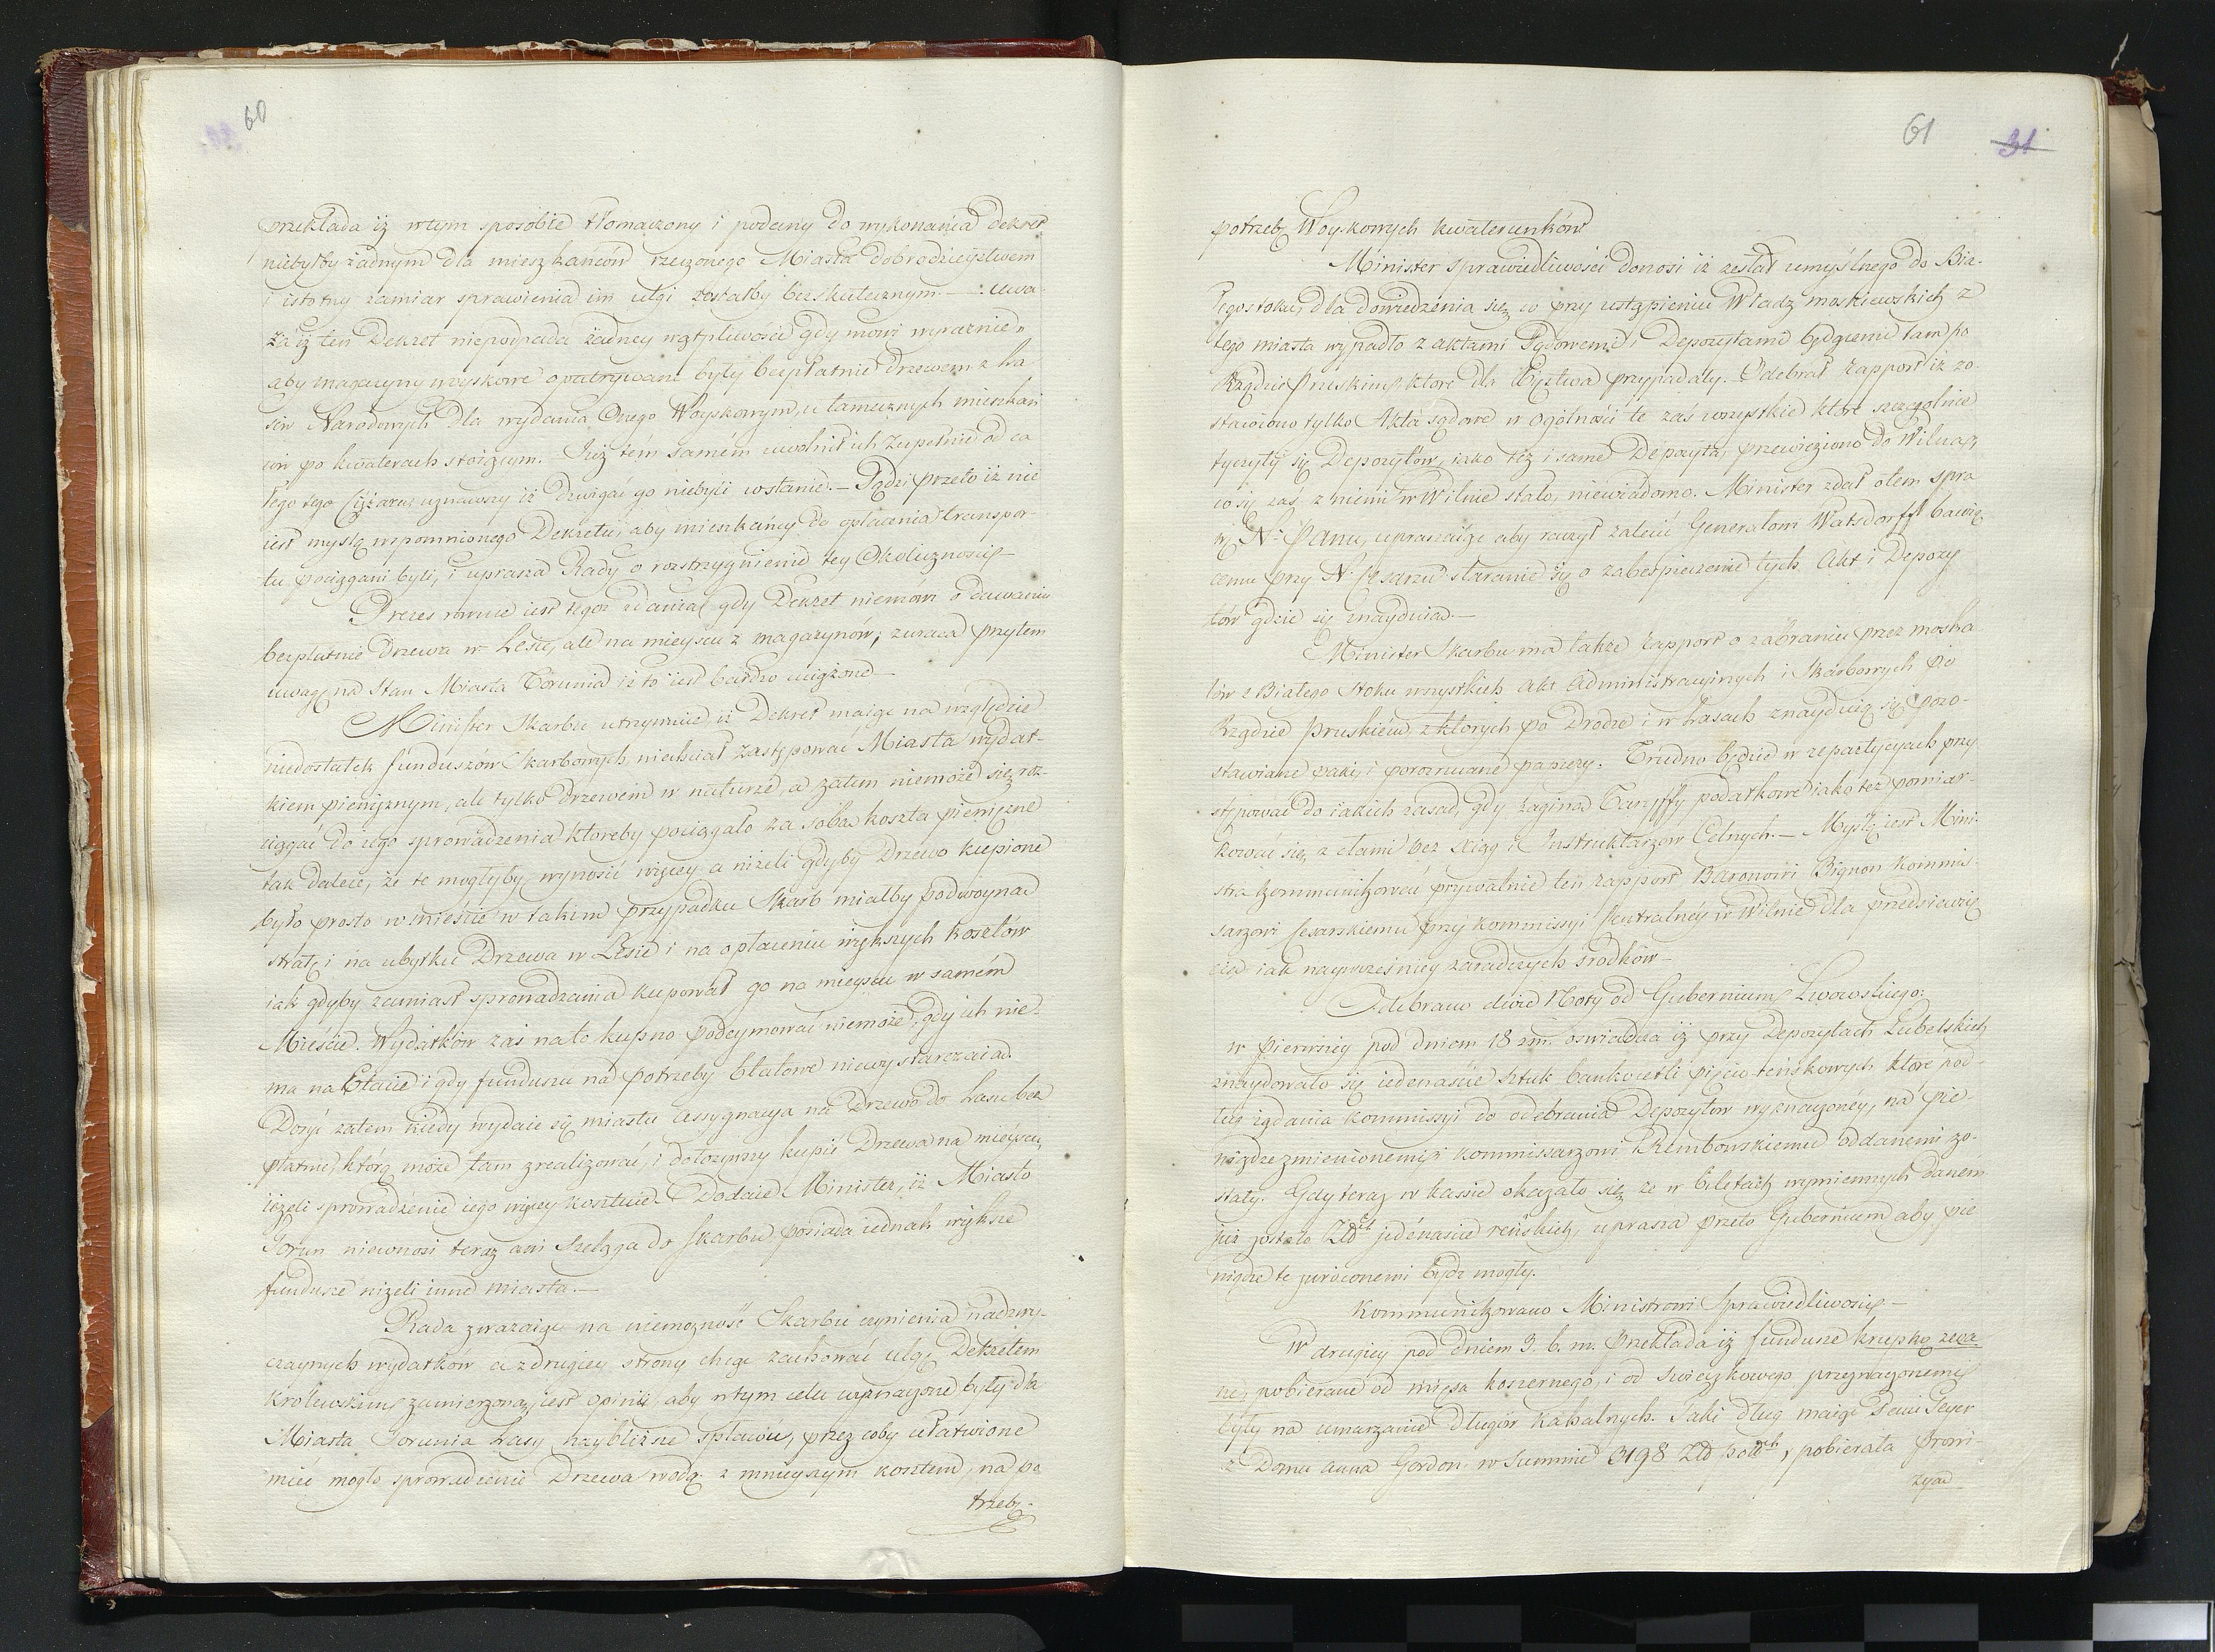 60
przekłada iż wtym sposobie tłomaczony i podany do wykonania dekret
niebyłby żadnym dla mieszkańców rzeczonego Miasta dobrodzieystwem
i istotny zamiar sprawienia im ulgi zostałby bezskutecznym. — uwa-
ża iż ten Dekret niepodpada żadney wątpliwości gdy mówi wyraźnie „
aby magazyny woyskowe opatrywane były bezpłatnie drzewem z la
sów Narodowych dla wydania Onego Woyskowym, u tamecznych mieszkań
ców po kwaterach stoiącym. Już tém samém uwolnił ich zupełnie od ca
łego tego Ciężaru, uznawszy iż dzwigać go niebyli wstanie. — Sądzi przeto iż nie
iest myślą wspomnionego Dekretu, aby mieszkańcy do opłacenia transpor-
tu pociągani byli, i uprasza Rady o rozstrzygnienie tey Okoliczności —
Prezes równie iest tegoż zdania, gdy Dekret niemówi o dawaniu
bezpłatnie Drzewa w Lesie, ale na mieyscu z magazynów; zwraca przytem
uwagę na Stan Miasta Torunia iż to iest bardzo uciążone —
Minister Skarbu utrzymuie iż Dekret maiąc na względzie
niedostatek funduszów Skarbowych, niechciał zastępować Miasta wydat-
kiem pieniężnym, ale tylko drzewem w naturze, a zatem niemoże się roz-
ciągać do iego sprowadzenia któreby pociągało za sobą koszta pieniężne
tak dalece, że te mogłyby wynosić więcey a niżeli gdyby Drzewo kupione
było prosto w mieście w takim przypadku Skarb miałby podwoyną
stratę i na ubytku Drzewa w Lesie i na opłaceniu większych kosztów
iak gdyby zamiast sprowadzania kupował go na mieyscu w samém
Mieście. Wydatków zaś na to kupno podeymować niemoże, gdy ich nie
ma na Etacie i gdy funduszu na potrzeby Etatowe niewystarczaią.
Dosyć zatem kiedy wydaie się miastu assygnacya na Drzewo do Lasu bez
płatnie, którą może tam zrealizować, i dołożywszy kupić Drzewa na mieyscu,
ieżeli sprowadzenie iego więcey kosztuie. Dodaie Minister, iż Miasto
Toruń niewnosi teraz ani Szeląga do Skarbu posiada iednak większe
fundusze niżeli inne miasta. —
Rada zważaiąc na niemożność Skarbu czynienia nadzwy-
czaynych wydatków a z drugiey strony chcąc zachować ulgę Dekretem
Królewskim zamierzoną, iest opinii, aby wtym celu wyznaczone były dla
Miasta Torunia Lasy naybliższe spławów, przez coby ułatwione
mieć mogło sprowadzenie Drzewa wodą z mnieyszym kosztem, na po
trzeby
61
31
potrzeb Woyskowych kwaterunków
Minister Sprawiedliwości donosi iż zesłał umyślnego do Bia-
łegostoku, dla dowiedzenia się, co przy ustąpieniu Władz moskiewskich z
tego miasta wypadło z aktami Sądowemi i Depozytami będącemi tam po
Rządzie Pruskim, które dla Xięztwa przypadały. Odebrał Rapport iż zo-
stawiono tylko Akta sądowe w ogólności te zaś wszystkie które szczególnie
tyczyły się Depozytów, iako też i same Depozyta, przewieziono do Wilna,
co się zaś z niemi w Wilnie stało, niewiadomo. Minister zdał o tem spra
wę N. Panu, upraszaiąc aby raczył zalecić Generałowi Watzdorff bawią
cemu przy N. Cesarzu staranie się o zabezpieczenie tych Akt i Depozy
tów gdzie się znayduią. —
Minister Skarbu ma także Rapport o zabraniu przez moska
lów z Białego Stoku wszystkich Akt Administracyinych i Skarbowych po
Rządzie Pruskiém z których po Drodze i w Lasach znayduią się pozo-
stawiane paki, i porozrucane papiery. Trudno będzie w repartycyach przy
stępować do iakich zasad, gdy zaginą Taryffy podatkowe iako też pomiar-
kować się z cłami bez xiąg i Instruktarzów Celnych. — Myślą iest Mini-
stra kommunikować prywatnie ten rapport Baronowi Bignon Kommis-
sarzowi Cesarskiemu przy Kommissyi Centralnéy w Wilnie dla przedsięwzię
cia iak naywcześniey zaradczych środków —
Odebrano dwie Noty od Gubernium Lwowskiego:
w pierwszey pod dniem 18 z. m. oświadcza iż przy Depozytach Lubelskich
znaydowało się iedenaście sztuk bankocetli pięcio-reńskowych które pod-
ług żądania Kommissyi do odebrania Depozytów wyznaczoney, na pie-
niądze zmienionemi, i Kommissarzowi Rembowskiemu oddanemi zo-
stały. Gdy teraz w kassie okazało się, że w biletach wymiennych daném
już zostało Złch jedénaście reńskich, uprasza przeto Gubernium aby pie
niądze te zwróconemi bydź mogły.
Kommunikowano Ministrowi Sprawiedliwości —
W drugiey pod dniem 3. b. m. przekłada iż fundusze krupką zwa-
ne, pobierane od mięsa koszernego, i od świeczkowego przeznaczonemi
były na umarzanie długów Kahalnych. Taki dług maiąc Pani Geyer
z Domu Anna Gordon w Summie 3198 Złd holdch, pobierała prowi-
zyą